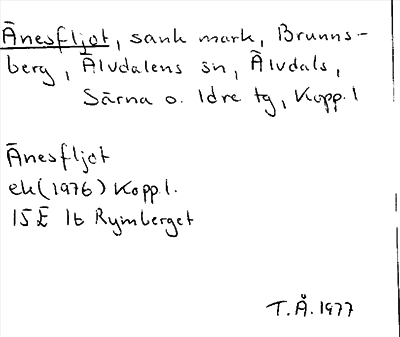 Änesfljot, sank mark, Brunns-
berg, Älvdalens sn, Älvdals,
Särna o. Idre tg, Kopp. l
Änesfljot
ek (1976) Kopp l.
15E 1b Rymberget
T.Å. 1977